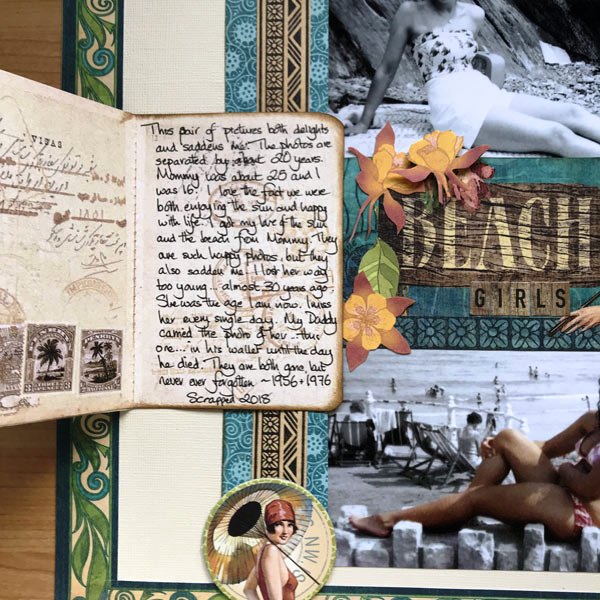 VISAS
This pair of pictures both delights
and saddens me. The photos are
separated by about 20 years.
Mommy was about 25 and I
was 16! I love the fact we were
both enjoying the sun and happy
with life. I got my love of the sun
and the beach from Mommy. They
are such happy photos.. but they
also sadden me. I lost her way
too young.. almost 30 years ago.
She was the age I am now. I miss
her every single day. My Daddy
carried the photo of her.. this
one... in his wallet until the day
he died. They are both gone, but
never ever forgotten ~ 1956 + 1976
Scrapped 2018
BEACH
GIRLS